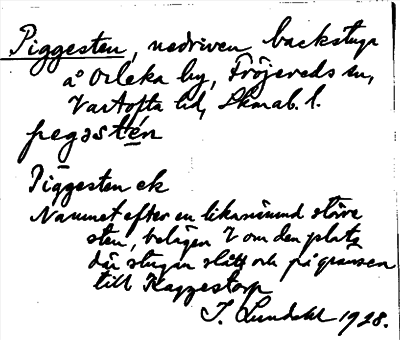 Piggesten, nedriven backstuga
å Orleka by, Fröjereds sn,
Vartofta hd, Skarab. l.
pegastén
Piggesten ek
Namnet efter en likanämnd större
sten, belägen V om den plats
där stugan stått och på gränsen
till Kaggestorp
I. Lundahl 1928.